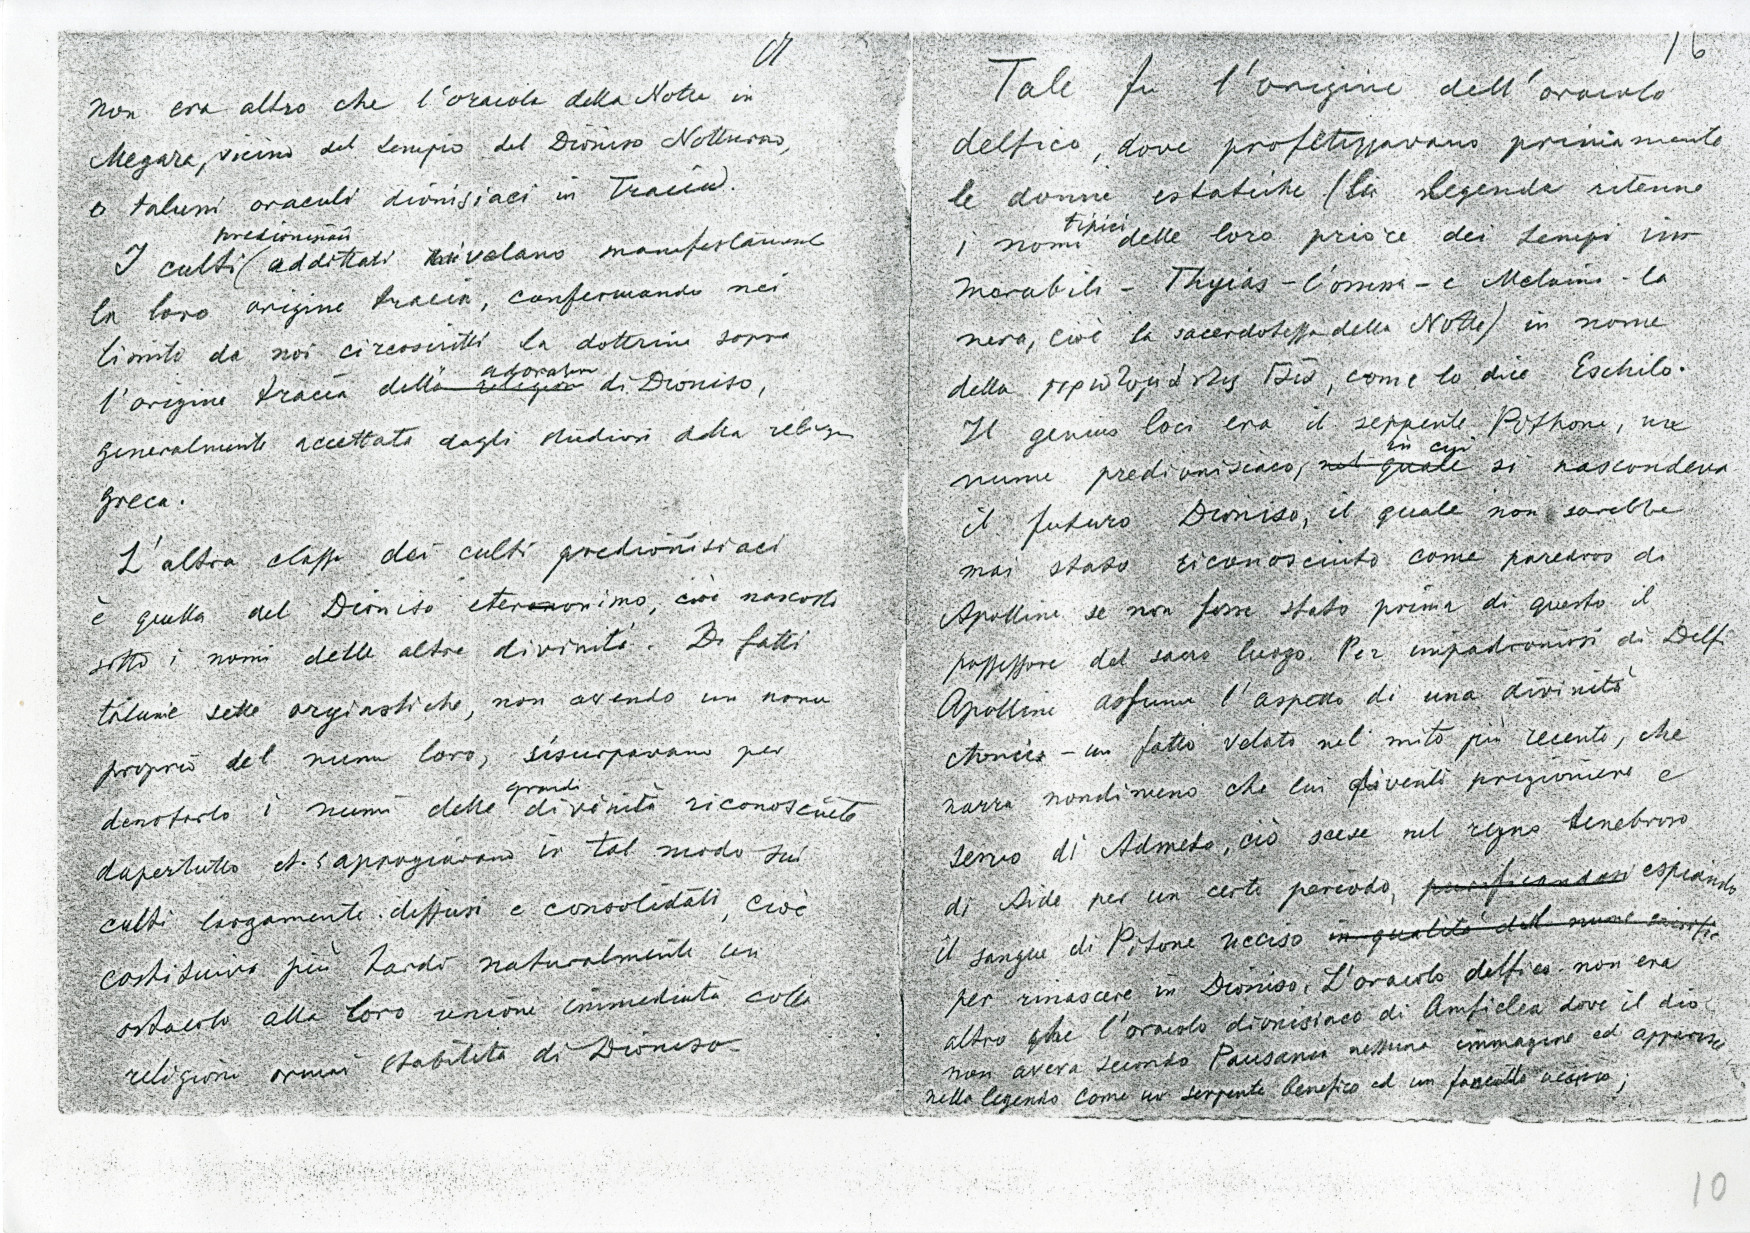 non era altro che l'oracolo della Notte in
Megara, vicino del tempio del Dioniso Notturno,
o taluni oracoli dionisiaci in Tracia.
predionisiaci
I culti additati rivelano manifestament
la loro origine tracia, confermando nei
limiti da noi circoscritti la dottrina sopra
adorazion
l'origine tracia della religion di Dioniso,
generalmente accettata dagli studiosi della religion
greca.
L'altra classe dei culti predionisiaci
è quella del Dioniso eteronimo, cioè nascosto
sotto i nomi delle altre divinità. Di fatti
talune sette orgiastiche, non avendo un nome
proprio del nume loro, si usurpavano per
grandi
denotarlo i numi delle divinità riconosciute
dapertutto e s'appoggiavano in tal modo sui
culti largamente diffusi e consolidati, cioè
costituiva più tardi naturalmente un
ostacolo alla loro unione immediata colla
religioni ormai stabilita di Dioniso
16
Tale fu l'origine dell'oracolo
delfico, dove profetizzavano primamente
le donne estatiche (la legenda ritenne
tipici
i nomi delle loro priore dei tempi im
morabili - Thyias - l'ossessa - e Melaina - la
nera, cioè la sacerdotessa della Notte) in nome
della , come lo dice Eschilo.
Il genius loci era il serpente Pithone, un
in cui
nume predionisiaco, nel quale si nascondeva
il futuro Dioniso, il quale non sarebbe
mai stato riconosciuto come paredros di
Apolline se non fosse stato prima di questo il
possessore del sacro luogo. Per impadronirsi di Delfi
Apolline assume l'aspetto di una divinità
ctonica - un fatto velato nel mito più recente, che
narra nondimeno che lui diventi prigioniero e
servo di Admeto, ciò scese nel regno tenebroso
di Aide per un certo periodo, purificandosi espiando
il sangue di Pitone ucciso in qualità del nume
per rinascere in Dioniso. L'oracolo delfico non era
altro che l'oracolo dionisiaco di Amficlea dove il dio
non aveva secondo Pausania nessuna immagine ed apparisce
nella legenda come un serpente benefico ed un fanciullo ucciso;
10